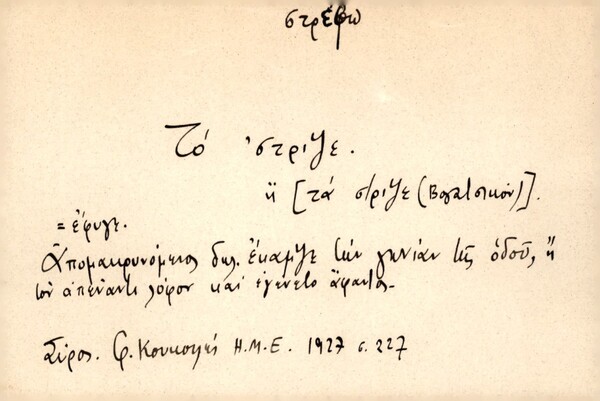 στρέφω
Τό 'στριψε.
ἤ [τά στριψε (Βολισσικόν)].
= ἔφυγε.
Ἀπομακρυνόμενος δηλ. ἔκαμψε τὴν γωνίαν τῆς ὁδοῦ, ἤ
τὸν ἀπέναντι λόφον καὶ ἐγένετο ἄφαντος.
Σῦρος. Φ. Κουκουλές Η.Μ.Ε. 1927 σ. 227